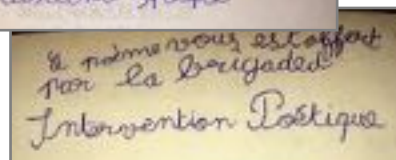 poème vous est offert
par la brigade d'
Intervention Poétique